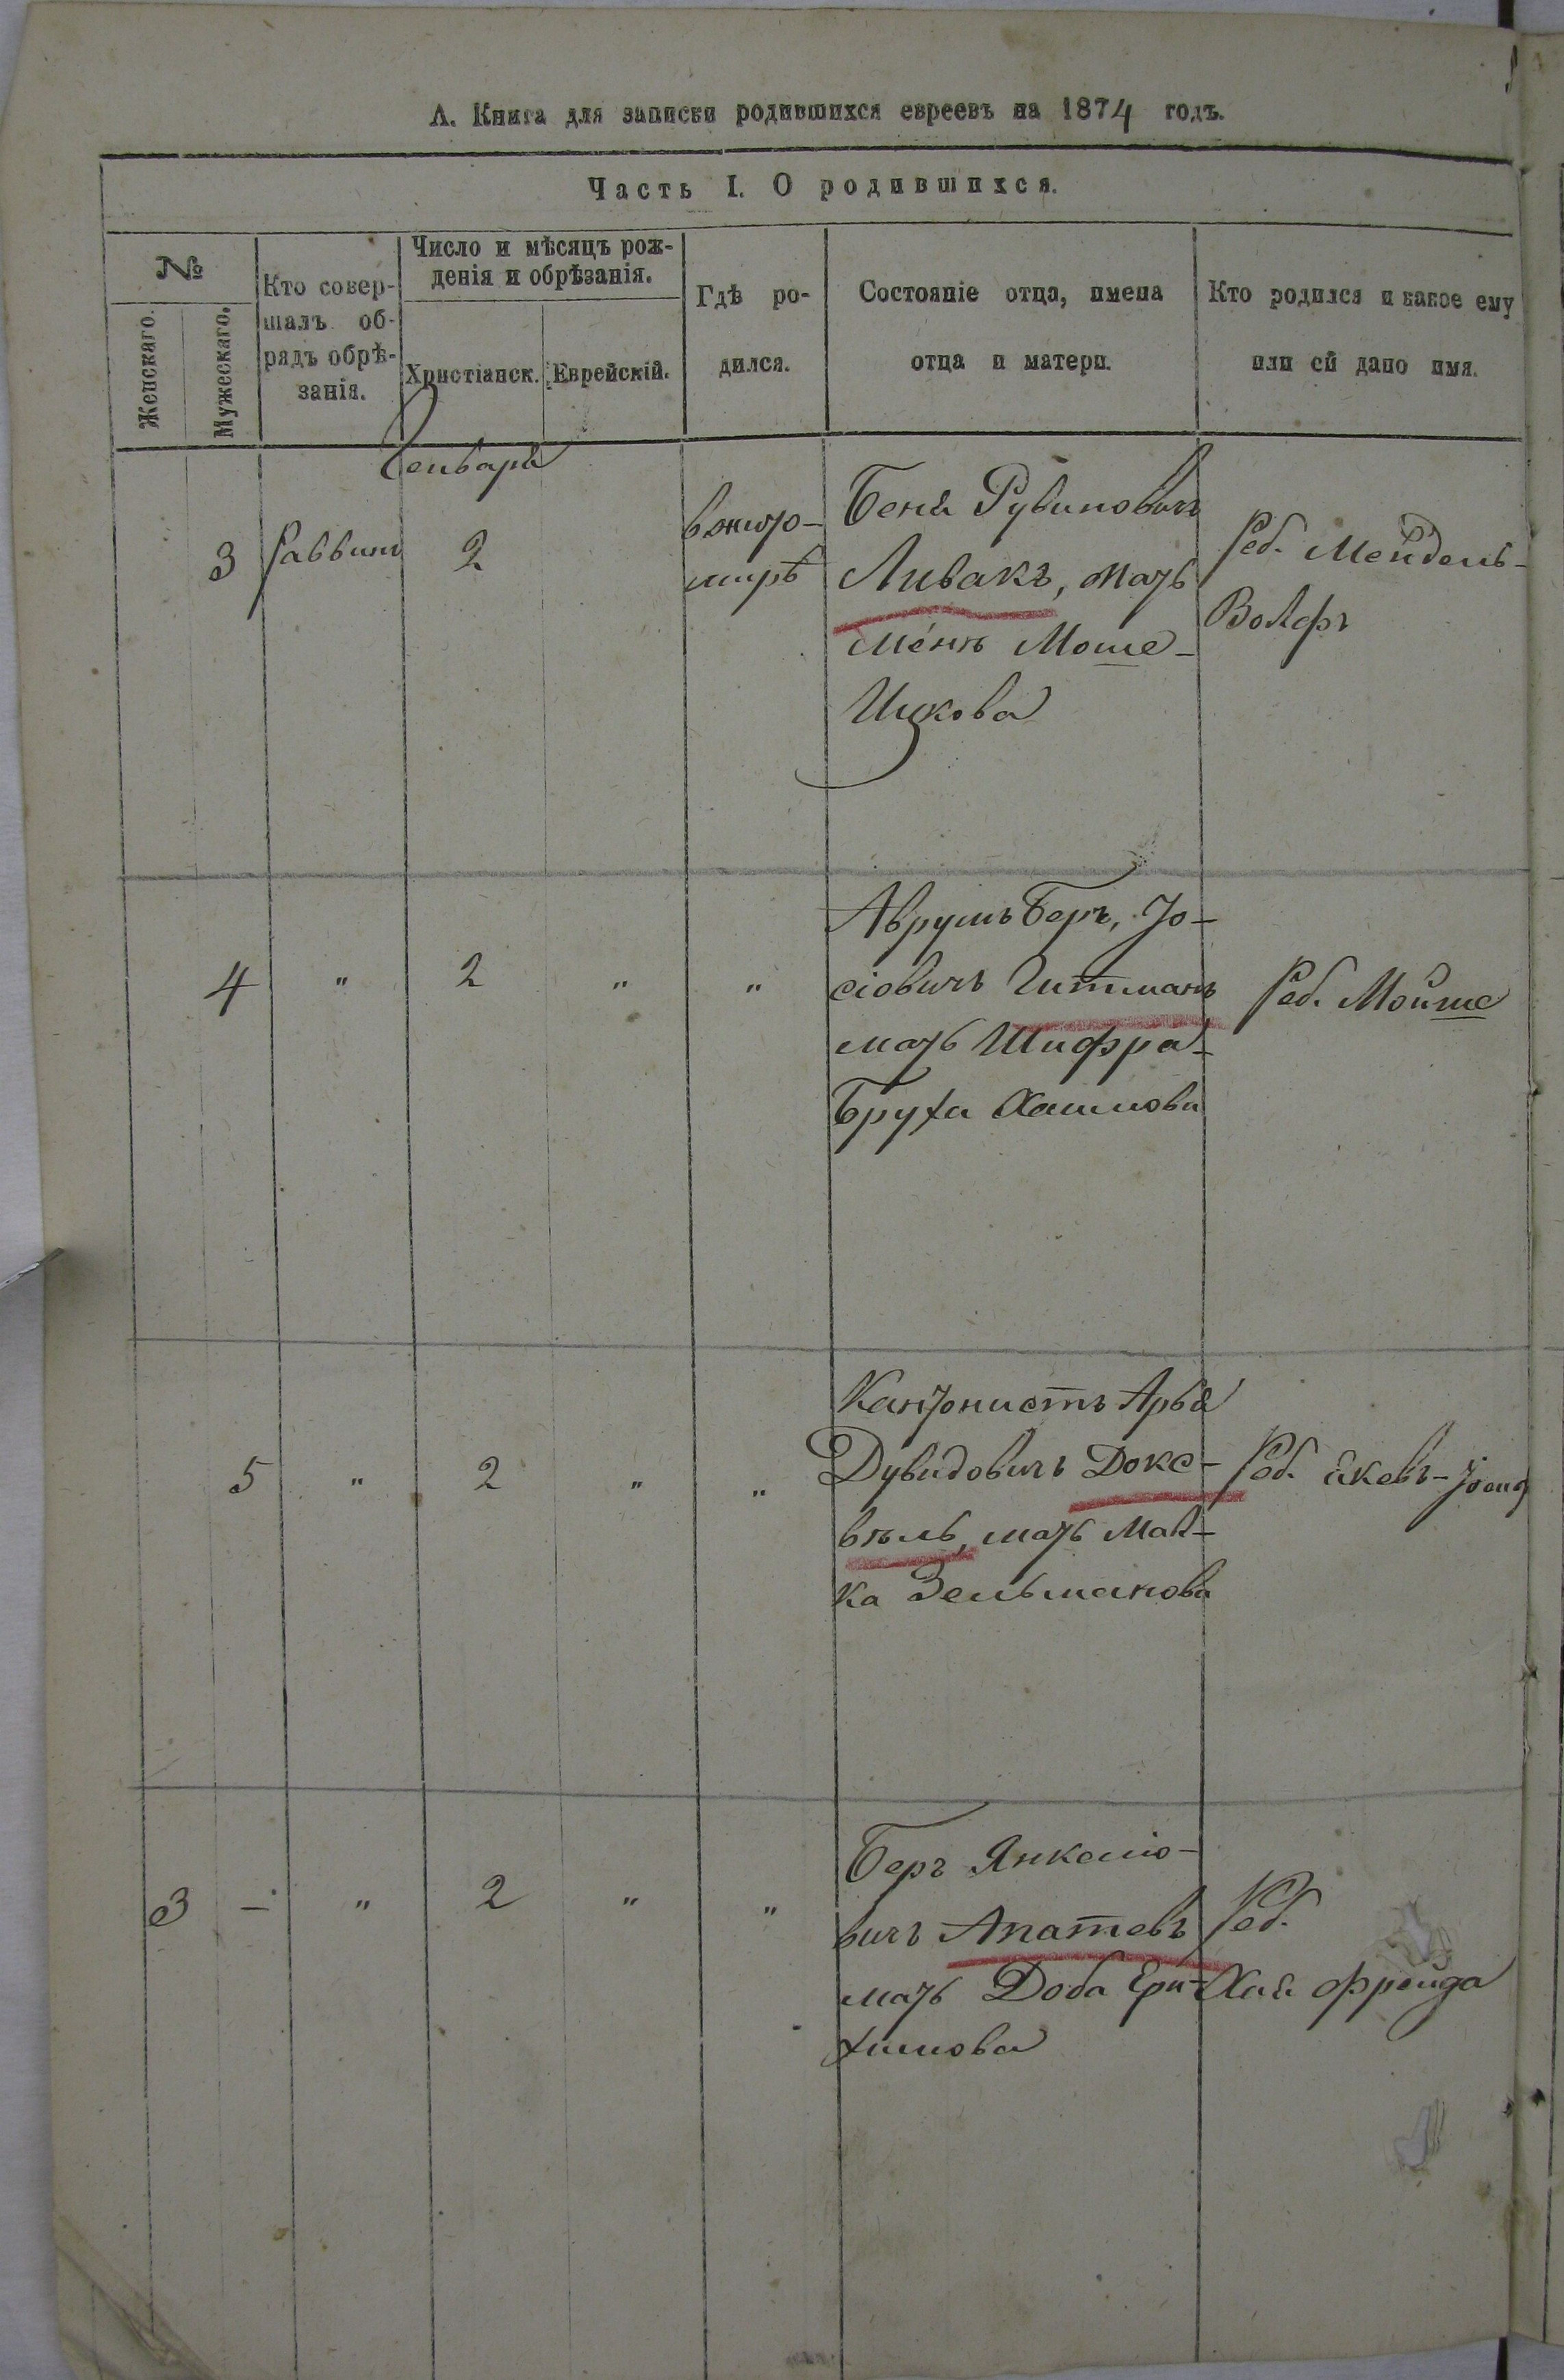 А. Книга для записки родившихся евреевъ на 1874 годъ.
Часть I. О родившихся.
№
Женскаго.
Мужескаго.
Кто совер-
шалъ об-
рядъ обрѣ-
занія.
Число и мѣсяцъ рож-
денія и обрѣзанія.
Христіанск.
Еврейскій.
Гдѣ ро-
дился.
Состояніе отца, имена
отца и матери.
Кто родился и какое ему
или ей дано имя.
Генваря
3
раввинъ
2
в жито-
мирѣ
Беня Рувиновичъ
Ливакъ, мать
Моше-
Ицкова
Реб. Мендель-
Волфъ
4
"
2
"
"
Аврумъ Беръ, Іо-
сіовичъ Гитманъ
мать Шифра-
Бруха Хаимова
Реб. Мойше
5
"
2
"
"
Кантонистъ Арья
Дувидовичъ Докс-
вѣль, мать Мал-
ка Зельманова
Реб.
3
-
"
2
"
"
Беръ Янкеліо-
вичъ Апатевъ
мать Доба Ери-
химова
Реб.
Хая Фрейда